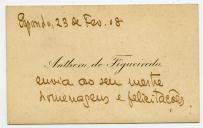 Espondo, 23 de Fev. 08
Anthero de Figueiredo
envia ao seu mestre
homenagens e felicitações